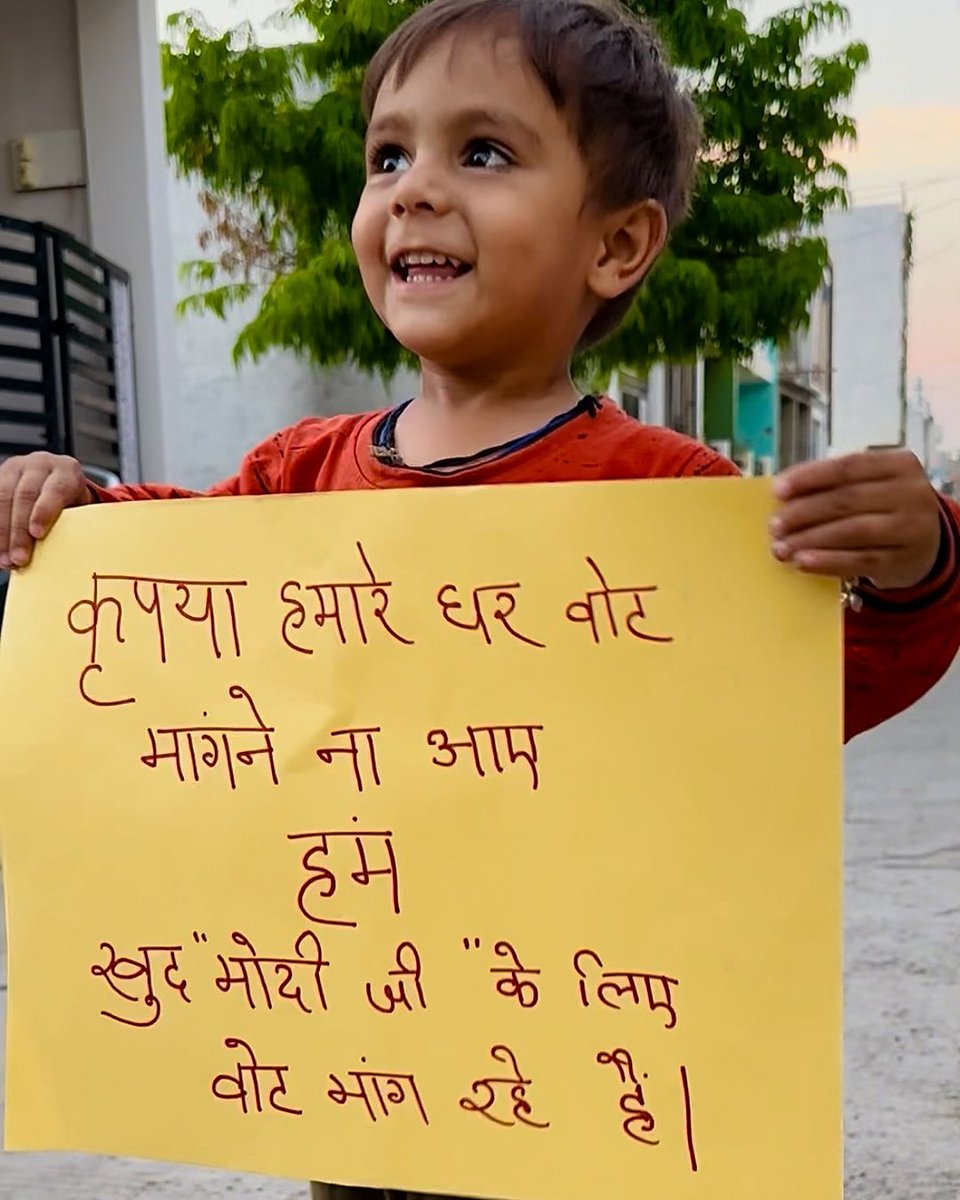 कृपया हमारे घर वोट
मांगने ना आए
हमं
खुद "मोदी जी" के लिए
वोट मांग रहे हैं।